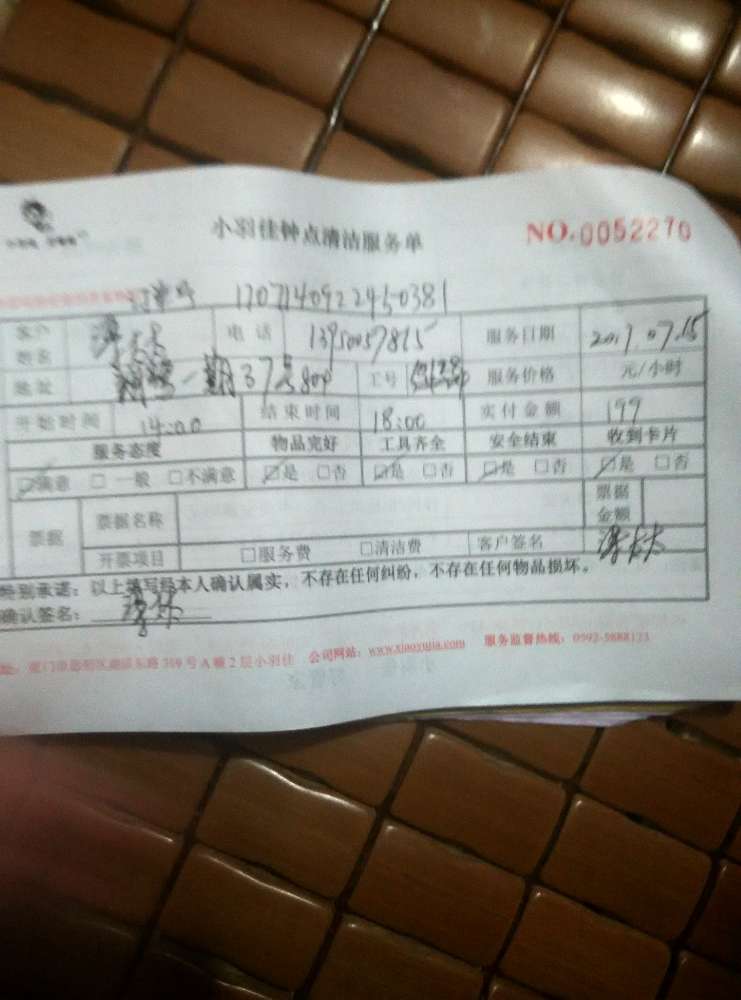 小羽佳钟点清洁服务单 NO.0052270
订单号 1707140922450381
客户姓名 电话 13950057815 服务日期 2017.07.15
地址 一期37号804 工号 服务价格 元/小时
开始时间 14:00 结束时间 18:00 实付金额 199
服务态度 物品完好 工具齐全 安全结束 收到卡片
☑满意 □一般 □不满意 ☑是 □否 ☑是 □否 ☑是 □否 ☑是 □否
票据 票据名称 票据金额
开票项目 □服务费 □清洁费 客户签名
特别承诺：以上填写经本人确认属实，不存在任何纠纷，不存在任何物品损坏。
确认签名：
址：厦门市思明区湖滨东路319号A幢2层小羽佳 公司网站：www.xiaoyujia.com 服务监督热线：0592-5888123